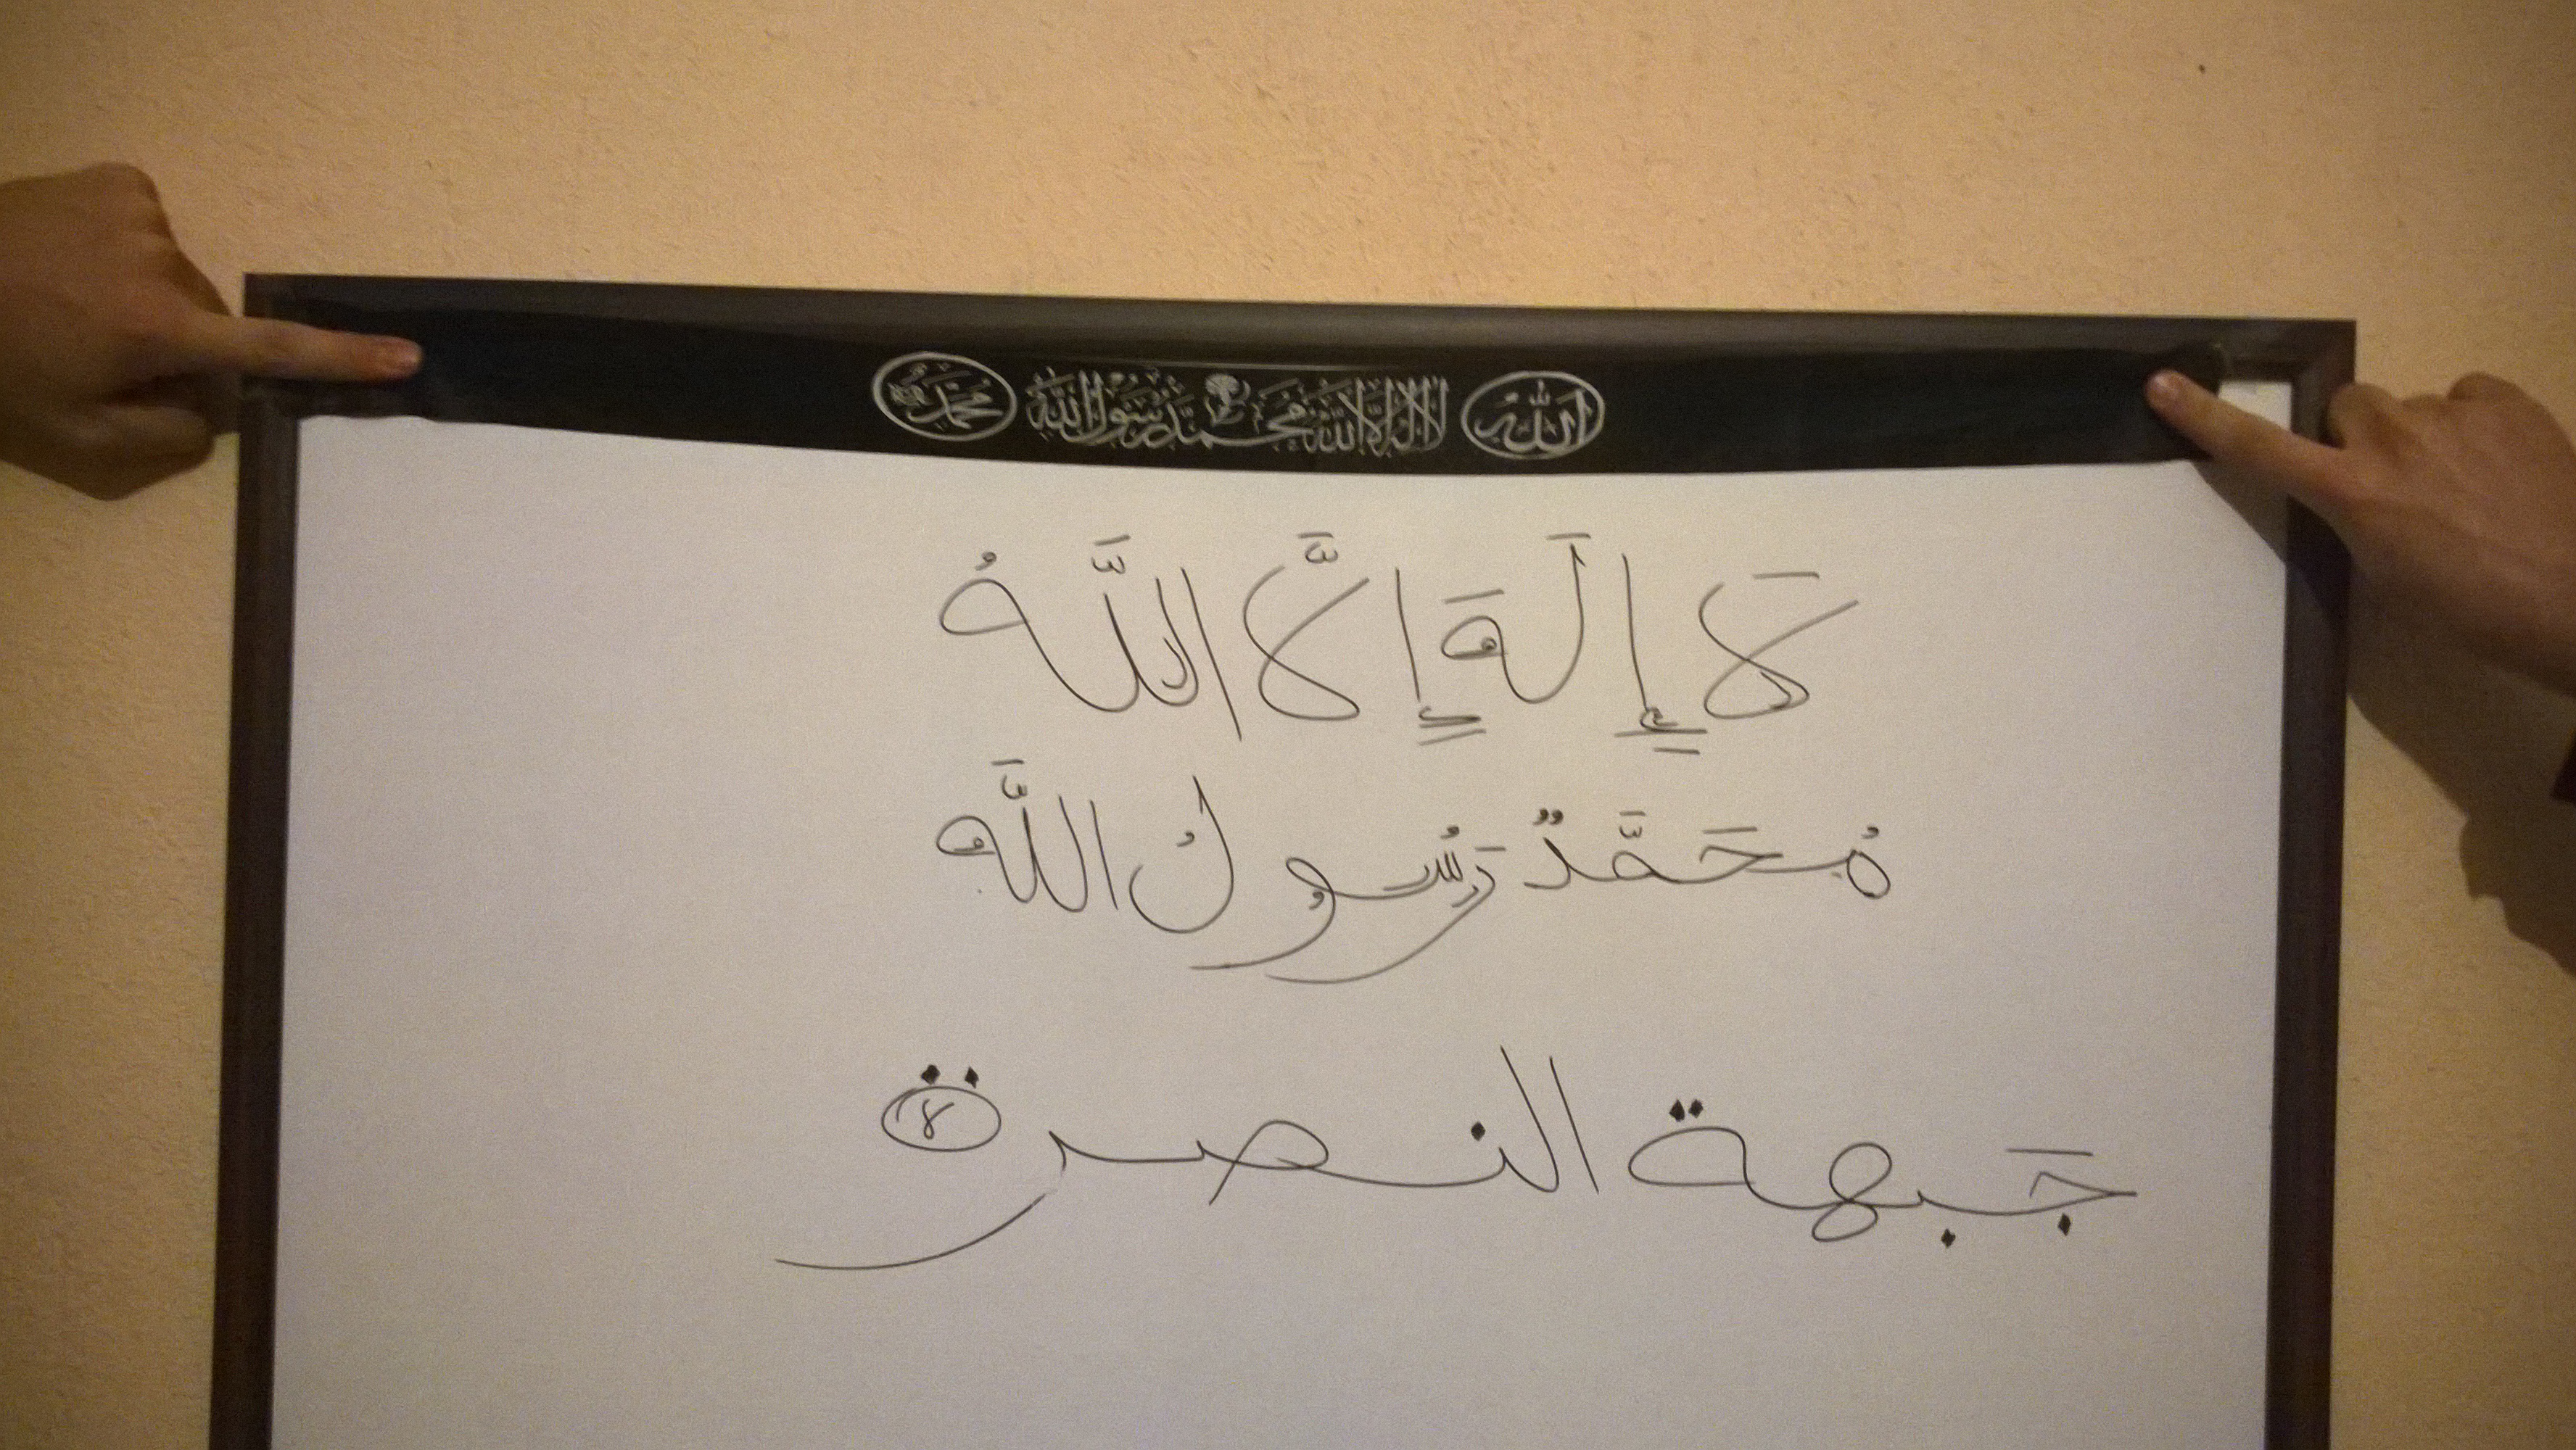 الله لا إله إلا الله محمد رسول الله محمد
لَا إِلَهَ إِلَّا اللَّهُ
مُحَمَّدٌ رَسُولُ اللَّهِ
جَبهة النصرة